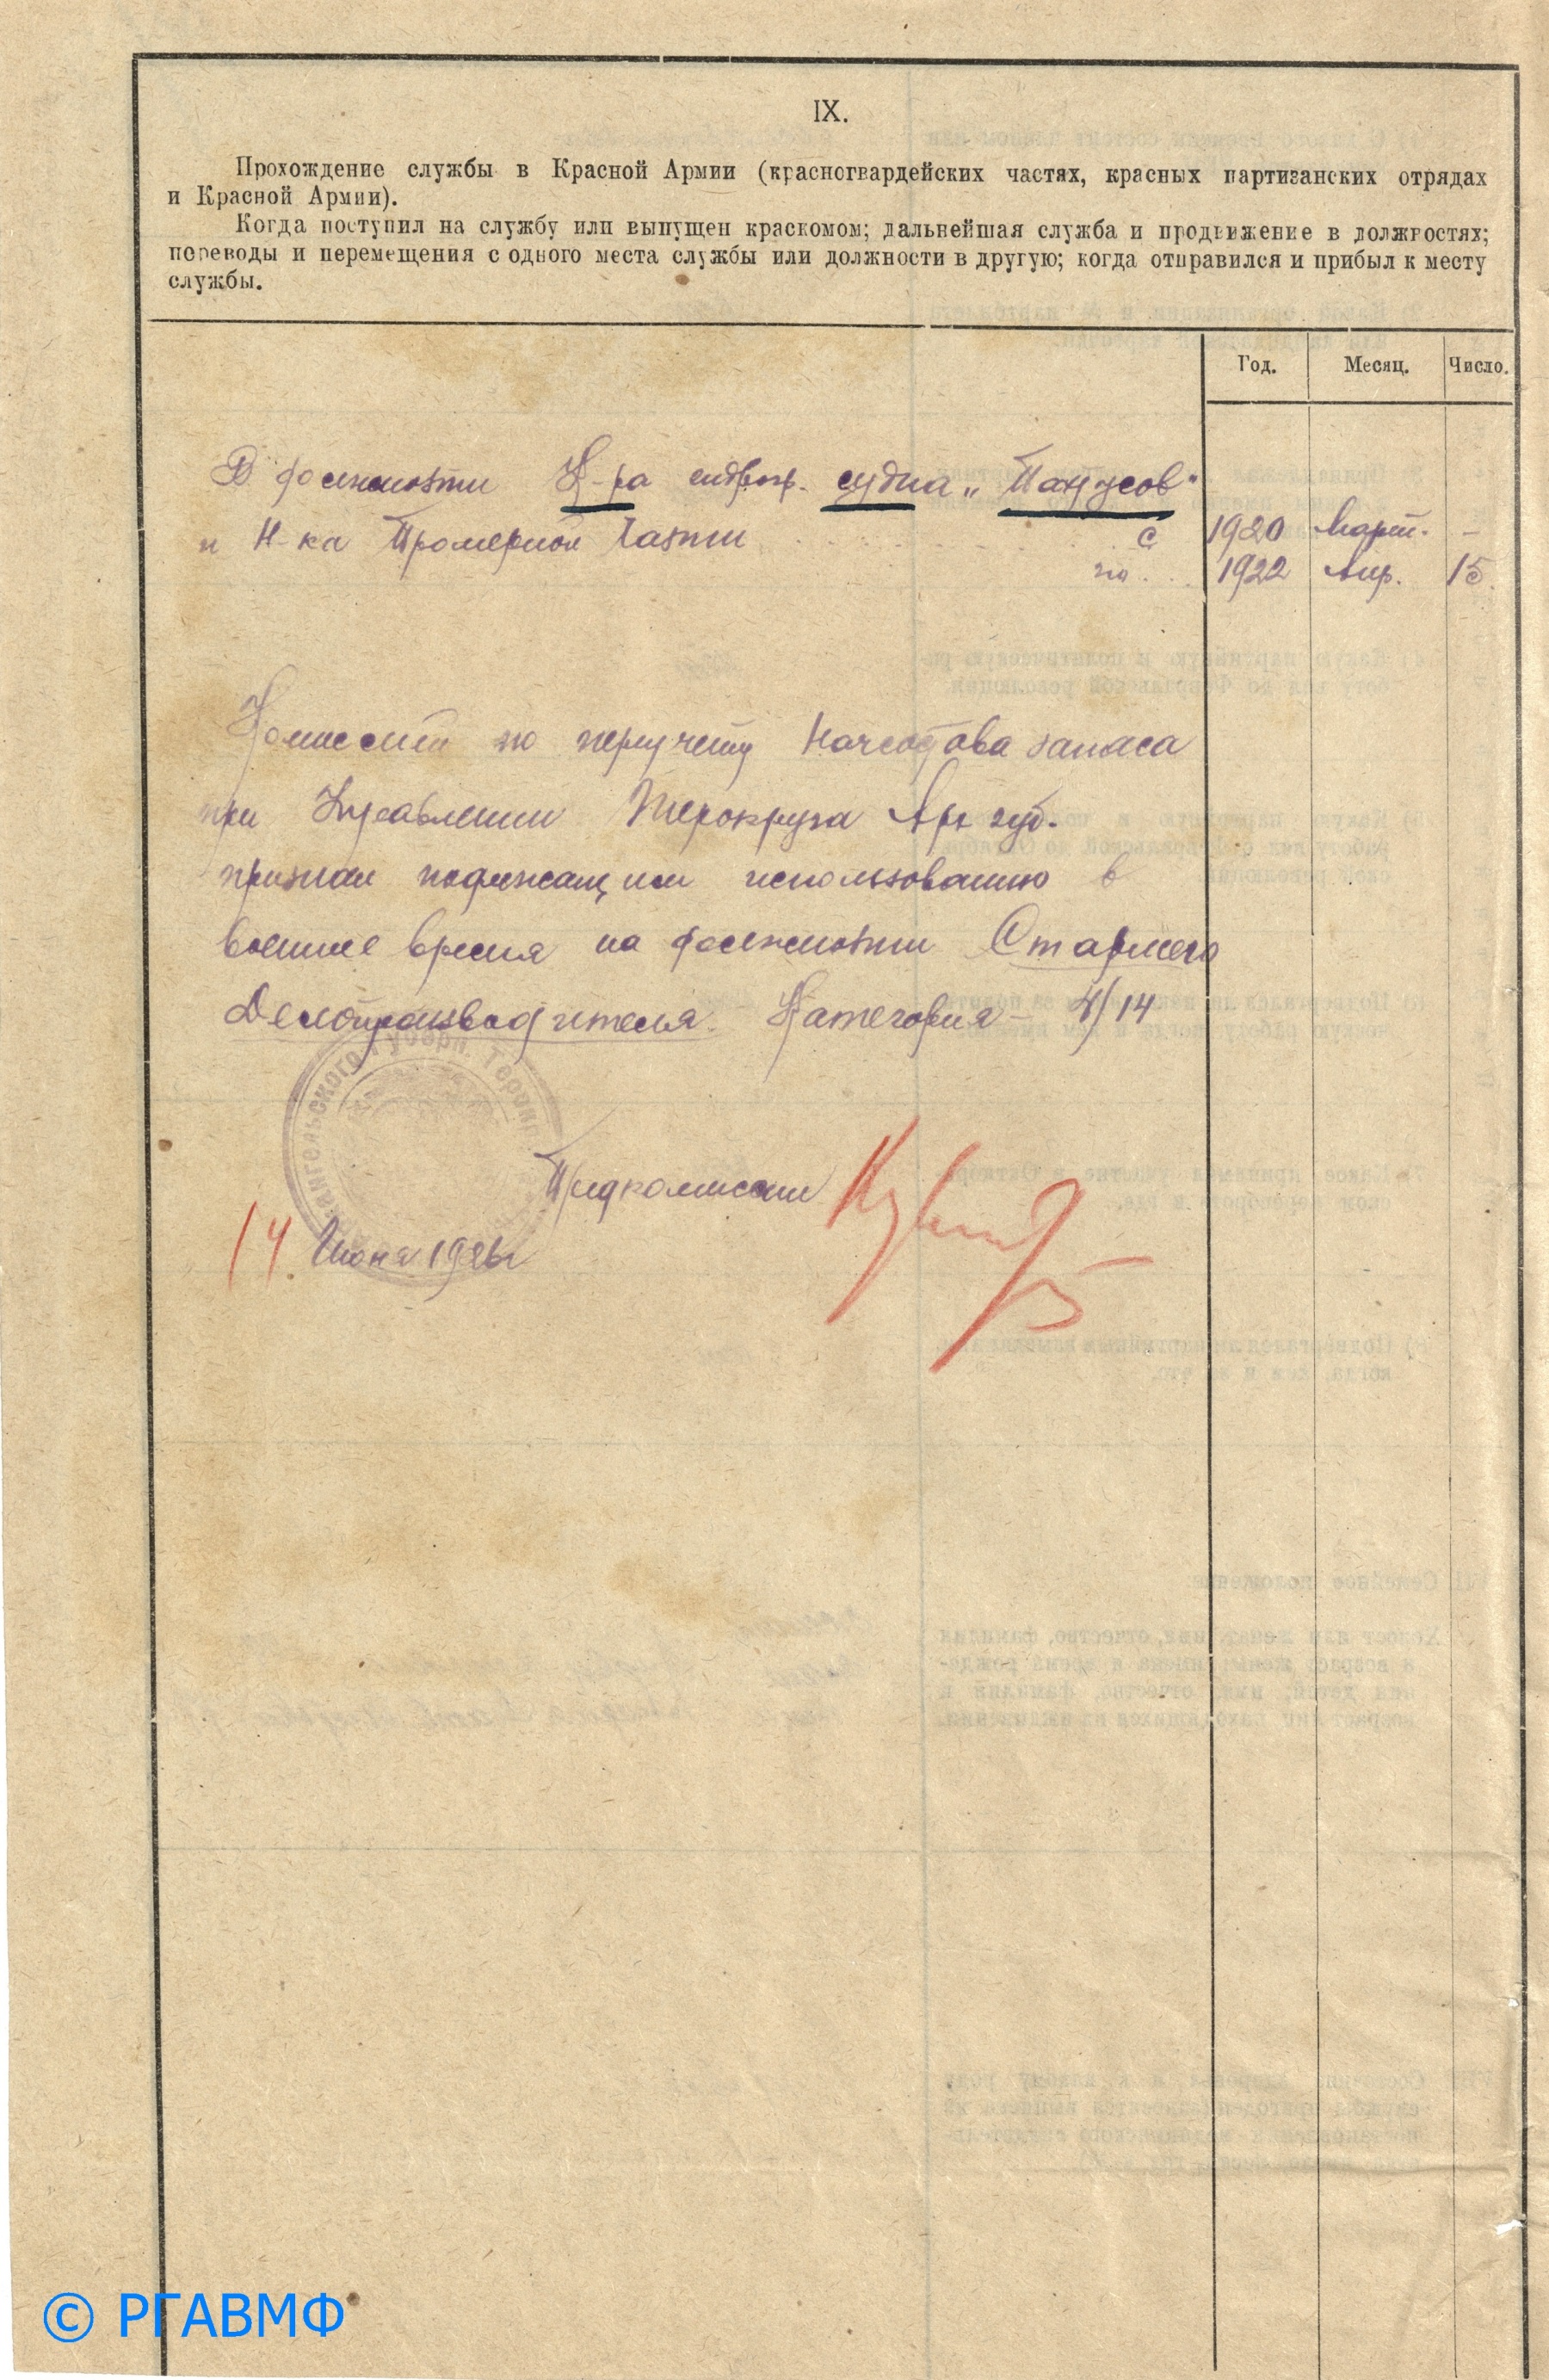 IX.
Прохождение службы в Красной Армии (красногвардейских частях, красных партизанских отрядах
и Красной Армии).
Когда поступил на службу или выпущен краскомом; дальнейшая служба и продвижение в должностях;
переводы и перемещения с одного места службы или должности в другую; когда отправился и прибыл к месту
службы.
Год. Месяц. Число.
В должности К-ра гидрогр. судна „Пахтусов"
и Н-ка Промерной Части с 1920 Март. –
по 1922 Апр. 15
Комиссией по переучету Начсостава запаса
при Управлении Терокруга Арх губ.
признан подлежащим использованию в
военное время на должности Старшего
Делопроизводителя. Категория – 4/14
Предкомиссии
14 Июня 1926г
© РГАВМФ